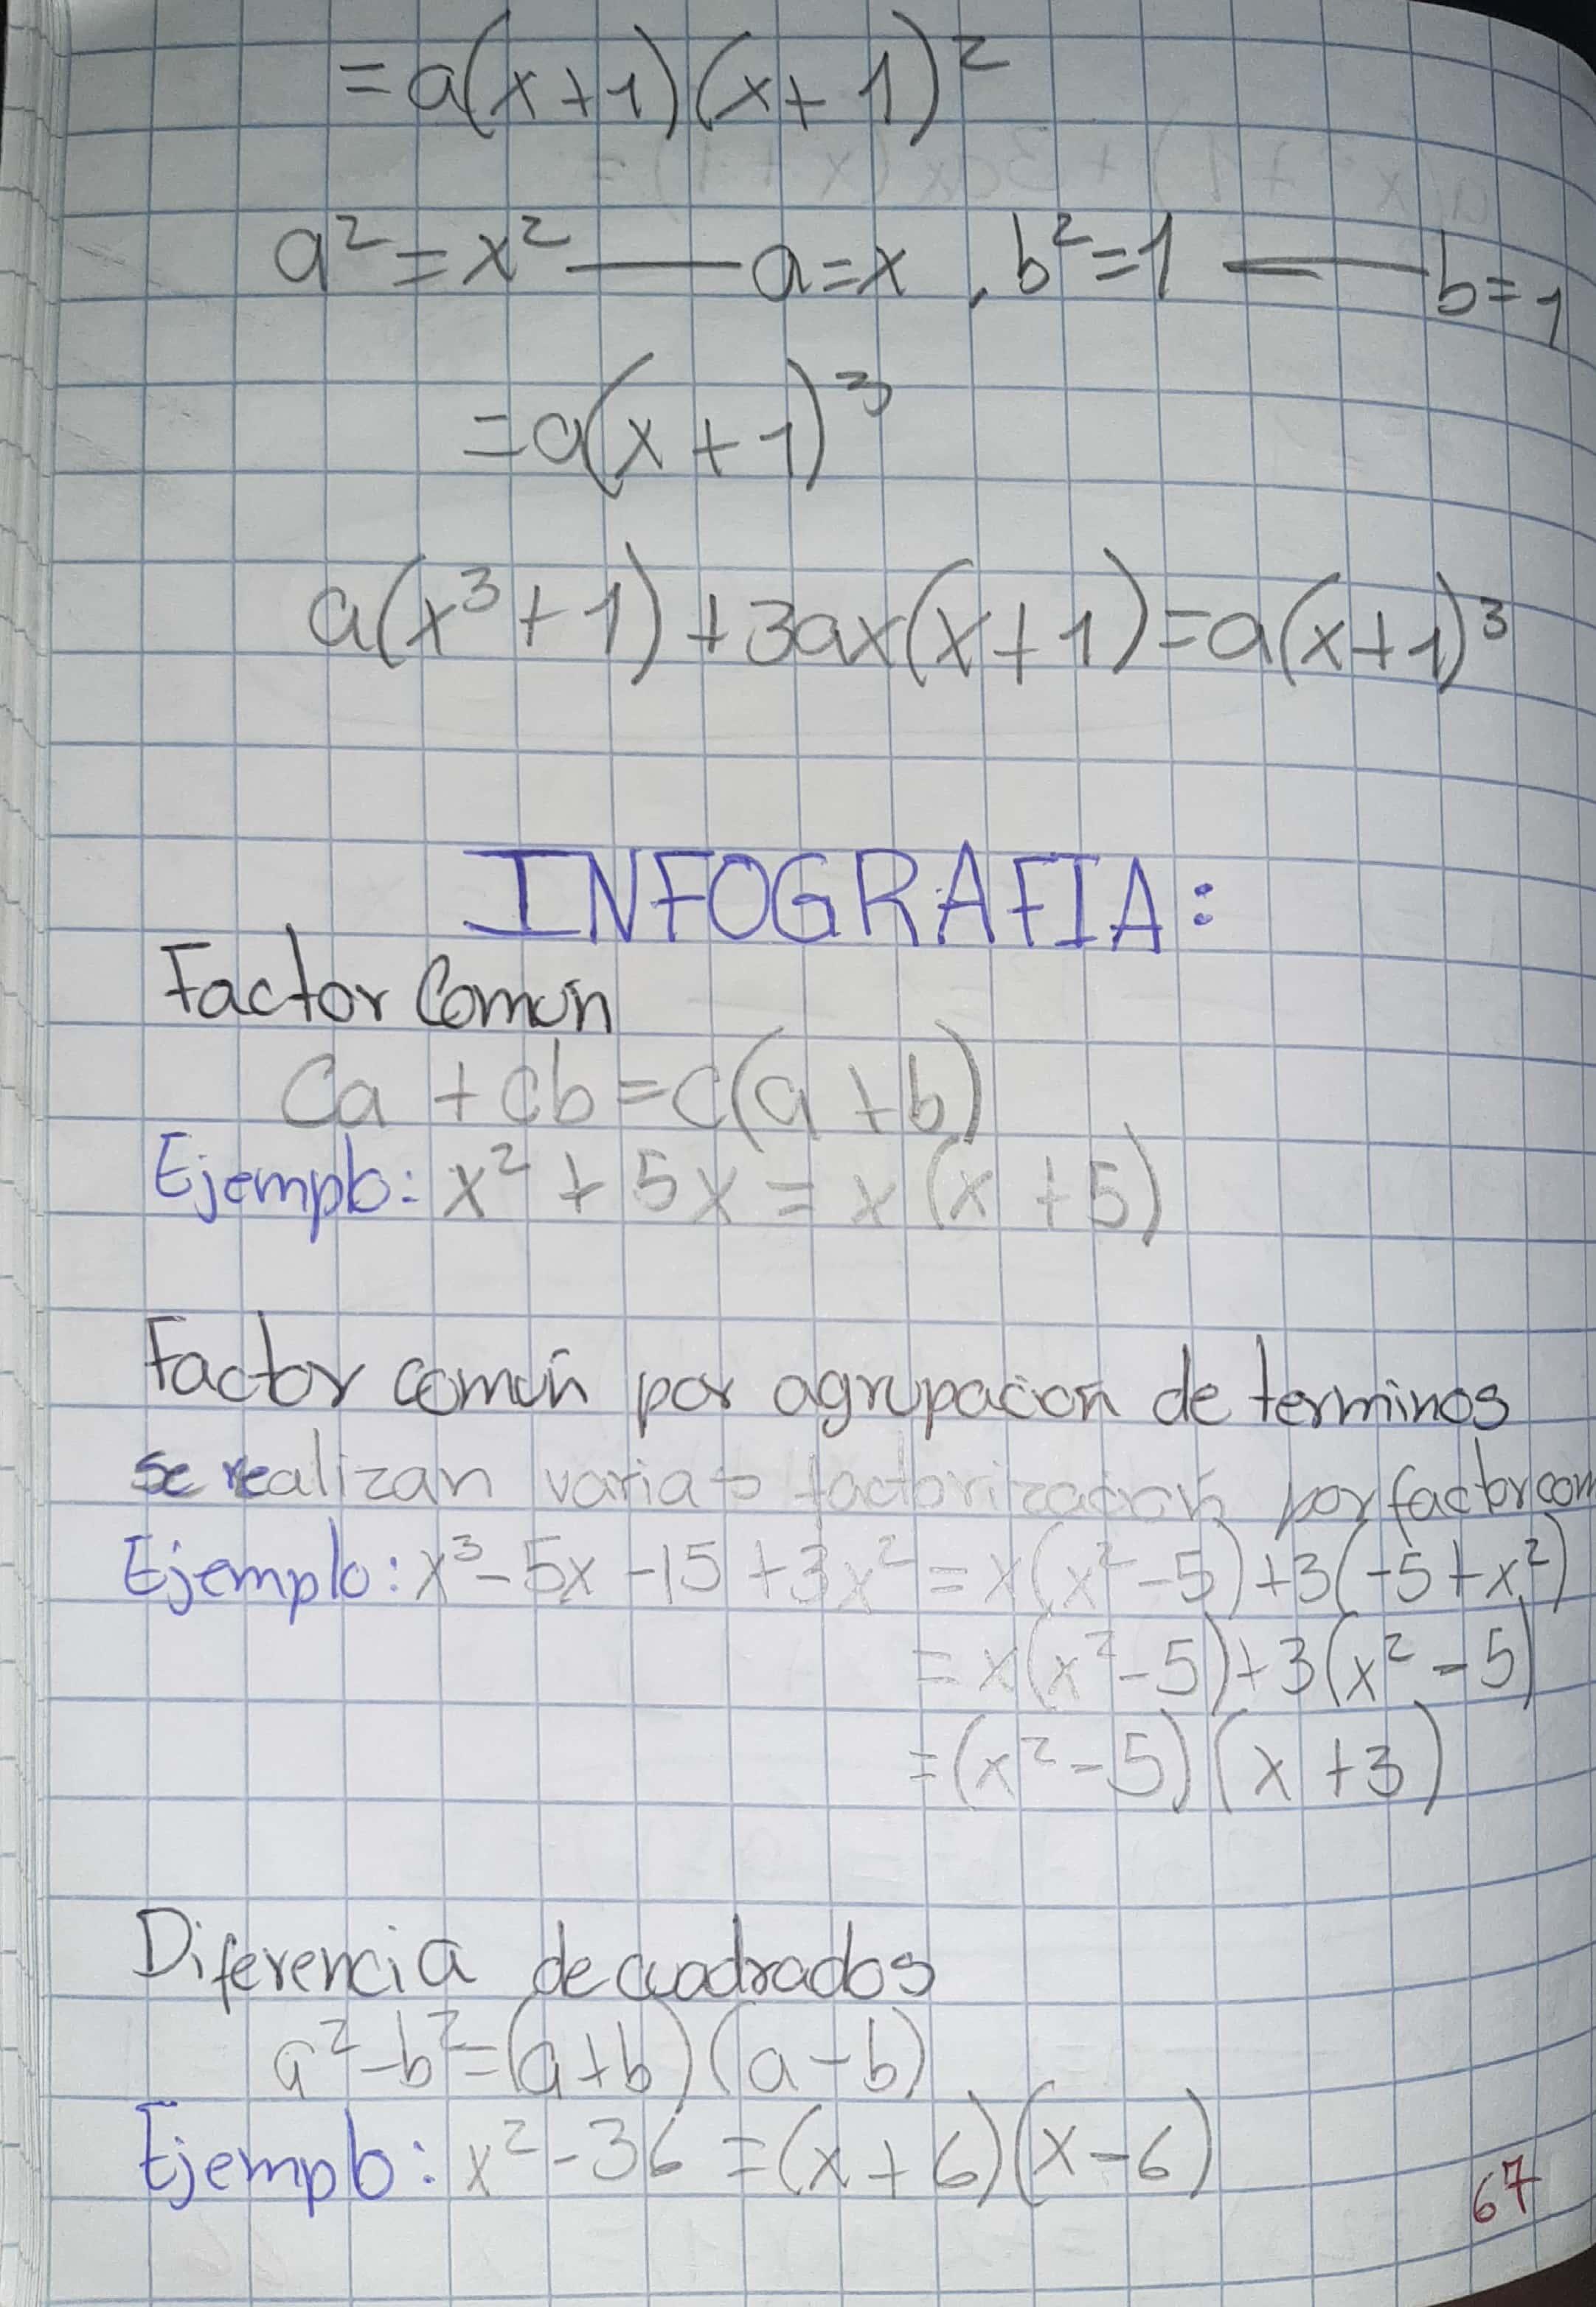 =a(x+1)(x+1)²
a²=x² — a=x . b²=1 — b=1
=a(x+1)³
a(x³+1)+3ax(x+1)=a(x+1)³
INFOGRAFIA:
Factor Común
Ca + cb = c(a+b)
Ejemplo: x² + 5x = x(x+5)
Factor común por agrupación de terminos
se realizan varias factorización por factor com
Ejemplo: x³-5x-15+3x²=x(x²-5)+3(-5+x²)
=x(x²-5)+3(x²-5)
=(x²-5)(x+3)
Diferencia de cuadrados
a²-b²=(a+b)(a-b)
Ejemplo: x²-36=(x+6)(x-6)
67